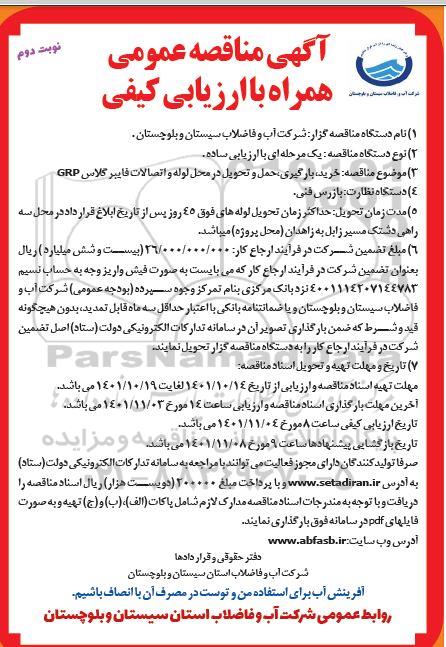 نوبت دوم
آگهی مناقصه عمومی
همراه با ارزیابی کیفی
شرکت آب و فاضلاب سیستان و بلوچستان
۱) نام دستگاه مناقصه گزار: شرکت آب و فاضلاب سیستان و بلوچستان .
۲) نوع دستگاه مناقصه : یک مرحله ای با ارزیابی ساده.
۳) موضوع مناقصه: خرید، بارگیری، حمل و تحویل در محل لوله و اتصالات فایبر گلاس GRP
۴) دستگاه نظارت: بازرس فنی.
۵) مدت زمان تحویل: حداکثر زمان تحویل لوله های فوق ۴۵ روز پس از تاریخ ابلاغ قرارداد در محل سه
راهی دشتک مسیر زابل به زاهدان (محل پروژه) میباشد.
۶) مبلغ تضمین شرکت در فرآیند ارجاع کار: ۲۶/۰۰۰/۰۰۰/۰۰۰ (بیست و شش میلیارد) ریال
بعنوان تضمین شرکت در فرآیند ارجاع کار که می بایست به صورت فیش واریز وجه به حساب نسیم
۴۰۰۱۱۱۴۲۰۷۱۴۴۷۸۳ نزد بانک مرکزی بنام تمرکز وجوه سپرده (بودجه عمومی) شرکت آب و
فاضلاب سیستان و بلوچستان و یا ضمانتنامه بانکی با اعتبار حداقل سه ماه قابل تمدید، بدون هیچگونه
قید و شرط که ضمن بارگذاری تصویر آن در سامانه تدارکات الکترونیکی دولت (ستاد) اصل تضمین
شرکت در فرآیند ارجاع کار را به دستگاه مناقصه گزار تحویل نمایند.
۷) تاریخ و مهلت تهیه و تحویل اسناد مناقصه:
مهلت تهیه اسناد مناقصه و ارزیابی از تاریخ ۱۴۰۱/۱۰/۱۴ لغایت ۱۴۰۱/۱۰/۱۹ می باشد.
آخرین مهلت بارگذاری اسناد مناقصه و ارزیابی ساعت ۱۴ مورخ ۱۴۰۱/۱۱/۰۳ می باشد.
تاریخ ارزیابی کیفی ساعت ۸ مورخ ۱۴۰۱/۱۱/۰۴ می باشد.
تاریخ بازگشایی پیشنهادها ساعت ۹ مورخ ۱۴۰۱/۱۱/۰۸ می باشد.
صرفا تولیدکنندگان دارای مجوز فعالیت می توانند با مراجعه به سامانه تدارکات الکترونیکی دولت (ستاد)
به آدرس www.setadiran.ir و با پرداخت مبلغ ۲۰۰۰۰۰ (دویست هزار) ریال اسناد مناقصه را
دریافت و با توجه به مندرجات اسناد مناقصه مدارک لازم شامل پاکات (الف)، (ب) و (ج) تهیه و به صورت
فایلهای pdf در سامانه فوق بارگذاری نمایند.
آدرس وب سایت: www.abfasb.ir
دفتر حقوقی و قراردادها
شرکت آب و فاضلاب استان سیستان و بلوچستان
آفرینش آب برای استفاده من و توست در مصرف آن با انصاف باشیم.
روابط عمومی شرکت آب و فاضلاب استان سیستان و بلوچستان